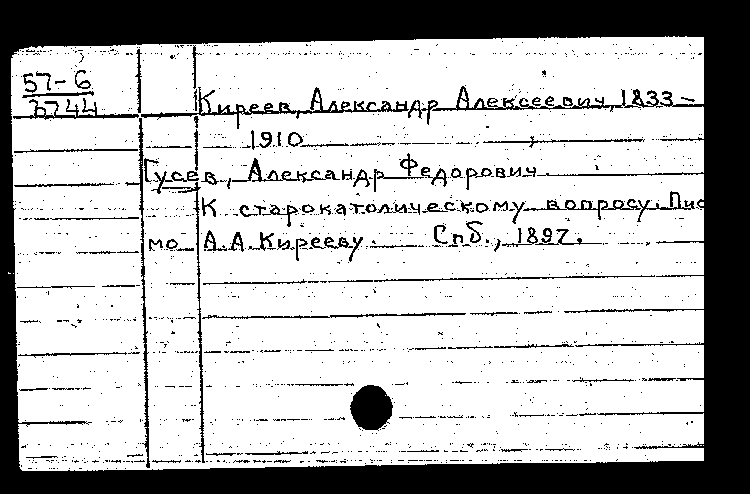 57-6
3744
Киреев, Александр Алексеевич, 1833-
1910
Гусев, Александр Федорович.
К старокатолическому вопросу. Пис
мо А.А. Кирееву. Спб., 1897.